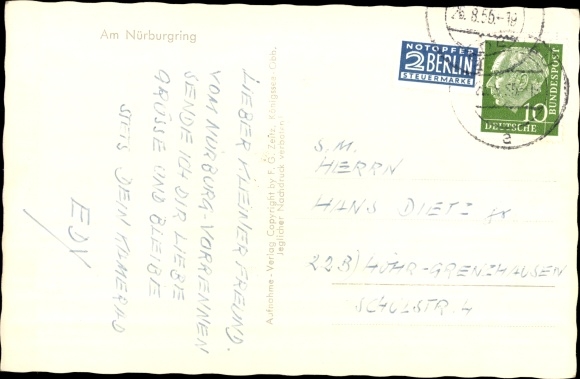 Am Nürburgring
26.8.56.-18
NOTOPFER
2 BERLIN
STEUERMARKE
10
DEUTSCHE
BUNDESPOST
a
LIEBER KLEINER FREUND.
VOM NÜRBURG-VORRENNEN
SENDE ICH DIR LIEBE
GRÜSSE UND BLEIBE
STETS DEIN KAMERAD
EDY
Aufnahme-Verlag Copyright by F. G. Zeitz, Königssee-Obb.
Jeglicher Nachdruck verboten!
S.M.
HERRN
HANS DIETZ
22B) HÖHR-GRENZHAUSEN
SCHULSTR. 4